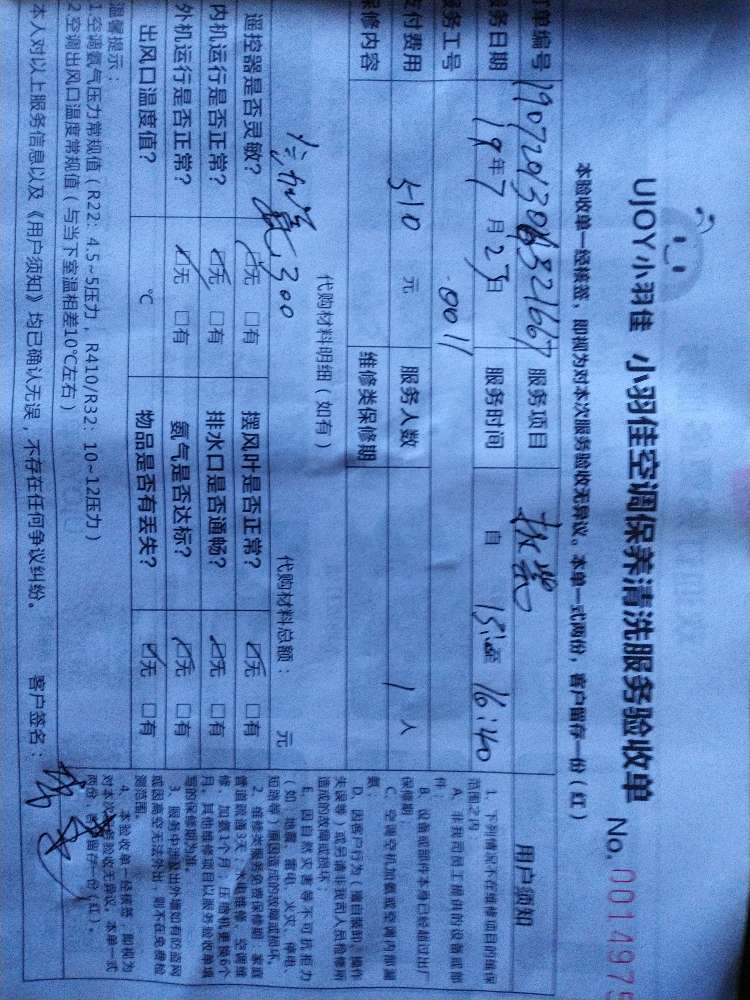 UJOY小羽佳 小羽佳空调保养清洗服务验收单
No. 0014975
本验收单一经核签，即视为对本次服务验收无异议。本单一式两份，客户留存一份（红）
单编号 服务项目
务日期 19年7月23日 服务时间 自 至 16:40
务工号 0011
支付费用 510 元 服务人数 1 人
保修内容 维修类保修期
代购材料明细（如有） 代购材料总额： 元
300
遥控器是否灵敏？ ☑无 □有 摆风叶是否正常？ ☑无 □有
内机运行是否正常？ ☑无 □有 排水口是否通畅？ ☑无 □有
外机运行是否正常？ ☑无 □有 氨气是否达标？ ☑无 □有
出风口温度值？ ℃ 物品是否有丢失？ ☑无 □有
温馨提示：
1空调氨气压力常规值（R22：4.5~5压力，R410/R32：10~12压力）
2空调出风口温度常规值（与当下室温相差10℃左右）
本人对以上服务信息以及《用户须知》均已确认无误，不存在任何争议纠纷。 客户签名：
用户须知
1、下列情况不在维修项目的维保
范围之内：
A、非我司员工提供的设备或部
件；
B、设备或部件本身已经超过出厂
保修期
C、空调空机加氨或空调内部漏
氨；
D、因客户行为（擅自装卸、操作
失误等）或另请非我司人员检修所
造成的故障或损坏；
E、因自然灾害等不可抗拒力
（如：地震、雷电、火灾、停电、
短路等）原因造成的故障或损坏。
2、维修类服务免费保修期：家庭
管道疏通3天，水电维修、空调维
修、加氨1个月，压缩机更换6个
月。其他维修项目以服务验收单填
写的保修期为准。
3、服务中涉及出外墙如有防盗网
或因高空无法外出，则不在免费检
测范围。
4、本验收单一经核签，即视为
对本次服务验收无异议。本单一式
两份，客户留存一份（红）。